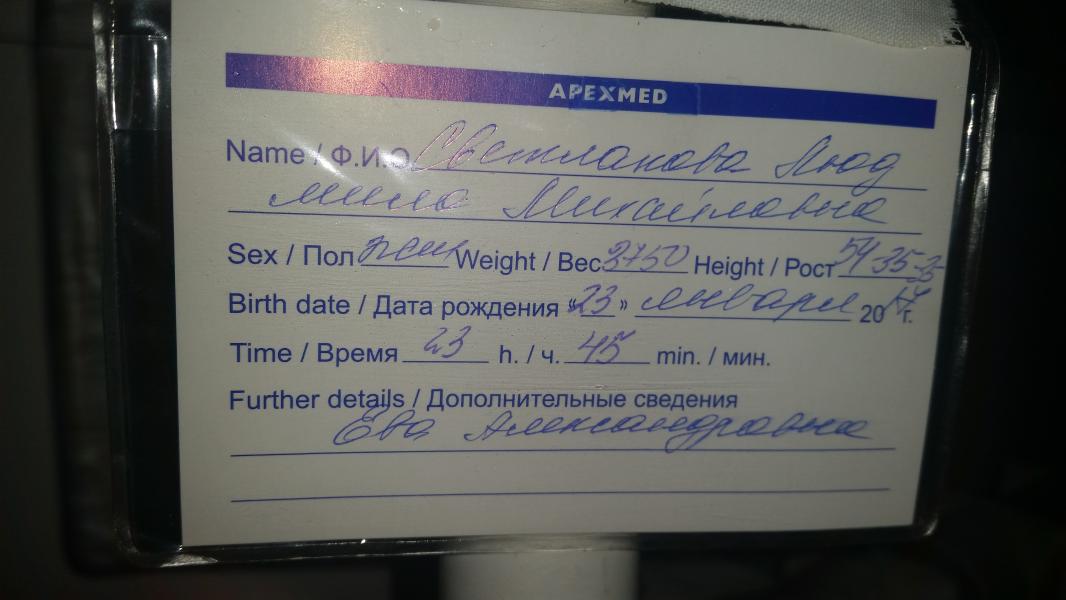 APEXMED
Name / Ф.И.О Светлакова Люд
мила Михайловна
Sex / Пол жен Weight / Вес 3750 Height / Рост 54-35-35
Birth date / Дата рождения «23» января 2017г.
Time / Время 23 h. / ч. 45 min. / мин.
Further details / Дополнительные сведения
Ева Александровна